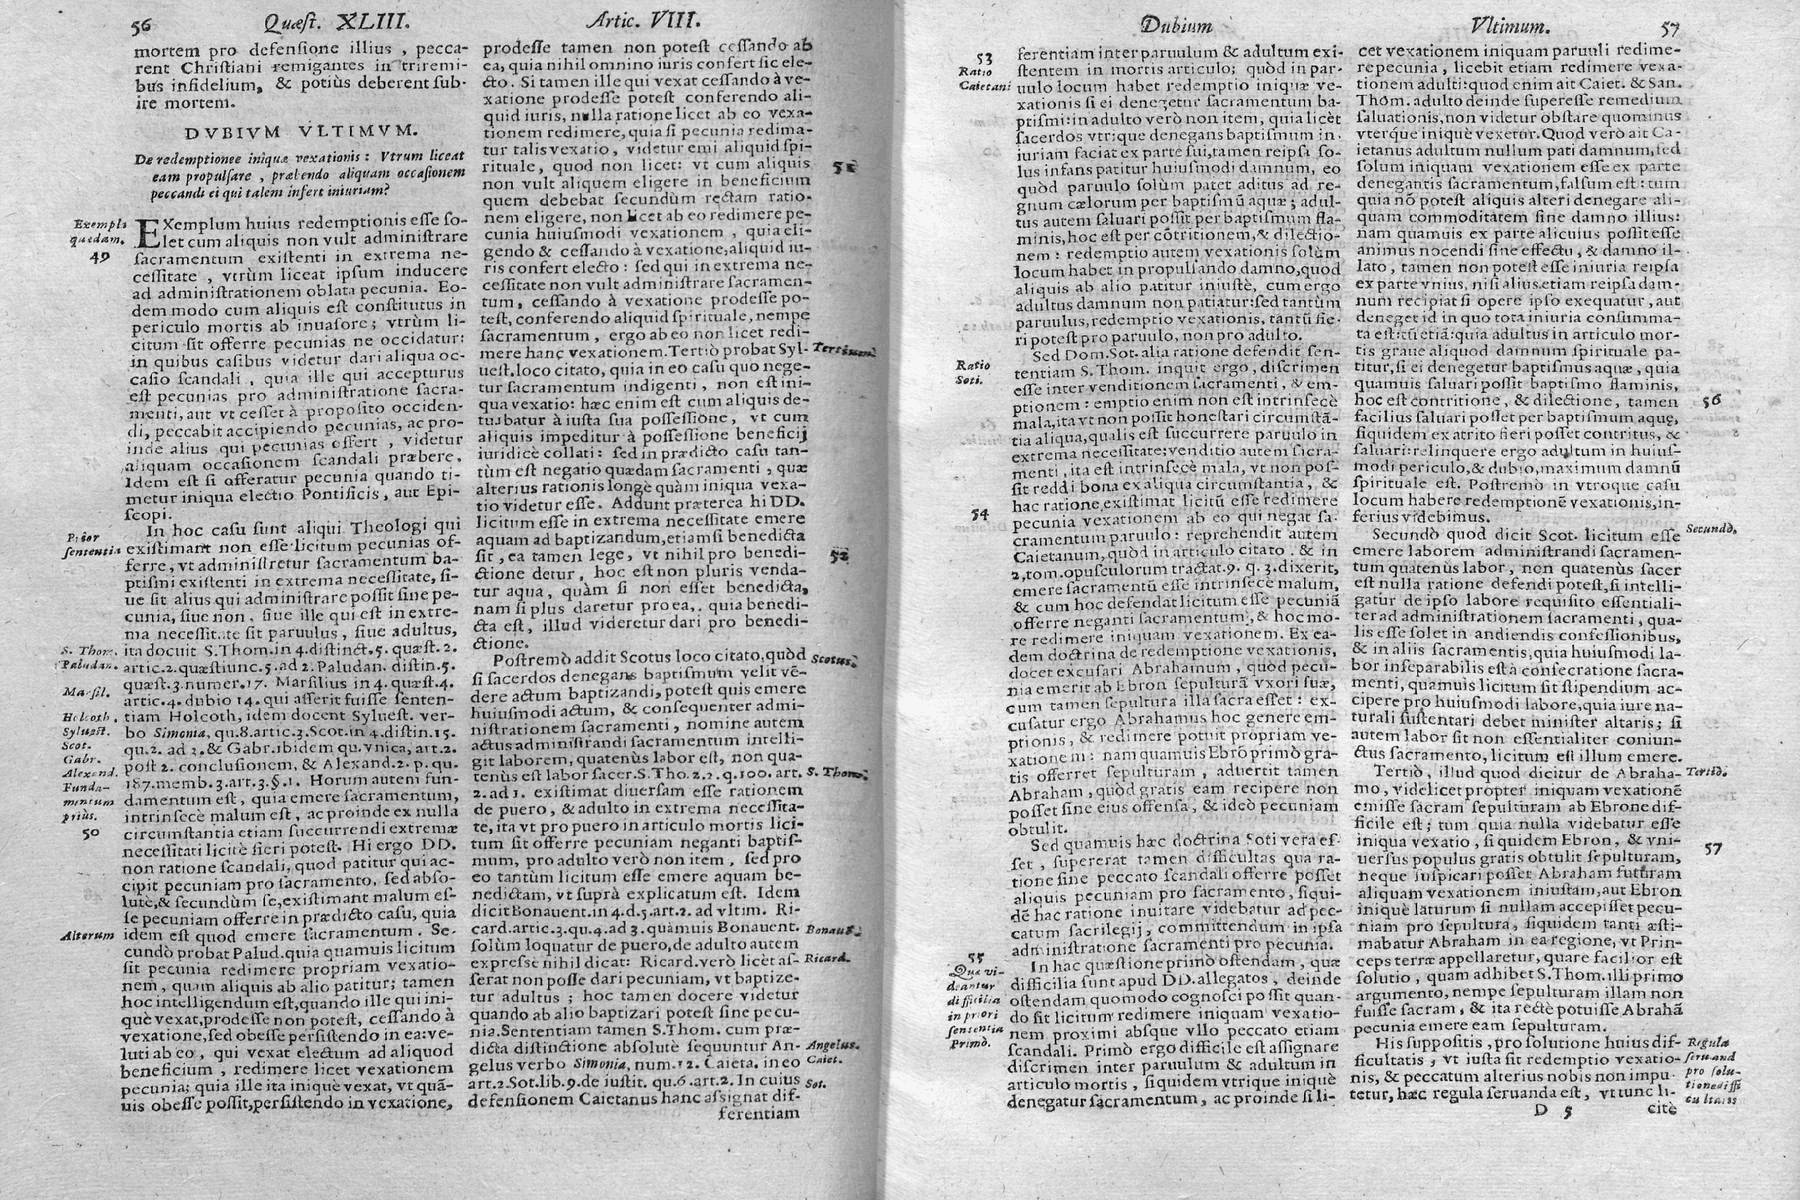 56 Quæst. XLIII. Artic. VIII.
mortem pro defensione illius, pecca-
rent Christiani remigantes in triremi-
bus infidelium, & potiùs deberent sub-
ire mortem.
DVBIVM VLTIMVM.
De redemptionee iniquæ vexationis: Vtrum liceat
eam propulsare, præbendo aliquam occasionem
peccandi ei qui talem infert iniuriam?
Exempla
quædam.
49
EXemplum huius redemptionis esse so-
let cum aliquis non vult administrare
sacramentum existenti in extrema ne-
cessitate, vtrùm liceat ipsum inducere
ad administrationem oblata pecunia. Eo-
dem modo cum aliquis est constitutus in
periculo mortis ab inuasore; vtrùm li-
citum sit offerre pecunias ne occidatur:
in quibus casibus videtur dari aliqua oc-
casio scandali, quia ille qui accepturus
est pecunias pro administratione sacra-
menti, aut vt cesset à proposito occiden-
di, peccabit accipiendo pecunias, ac pro-
inde alius qui pecunias offert, videtur
aliquam occasionem scandali præbere.
Idem est si offeratur pecunia quando ti-
metur iniqua electio Pontificis, aut Epi-
scopi.
Prior
sententia
In hoc casu sunt aliqui Theologi qui
existimant non esse licitum pecunias of-
ferre, vt administretur sacramentum ba-
ptismi existenti in extrema necessitate, si-
ue sit alius qui administrare possit sine pe-
cunia, siue non, siue ille qui est in extre-
ma necessitate sit paruulus, siue adultus,
S. Thom.
Paludan.
Marsil.
Holcoth.
Syluest.
Scot.
Gabr.
Alexand.
Funda-
mentum
prius.
50
ita docuit S.Thom.in 4.distinct.5. quæst.2.
artic.2. quæstiunc.5.ad 2. Paludan. distin.5.
quæst.3.numer.17. Marsilius in 4. quæst.4.
artic.4. dubio 14. qui asserit fuisse senten-
tiam Holcoth, idem docent Syluest. ver-
bo Simonia, qu.8.artic.3.Scot.in 4.distin.15.
qu.2. ad 2.& Gabr.ibidem qu.vnica, art.2.
post 2. conclusionem, & Alexand.2. p.qu.
187.memb.3.art.3.§.1. Horum autem fun-
damentum est, quia emere sacramentum,
intrinsecè malum est, ac proinde ex nulla
circumstantia etiam succurrendi extremæ
necessitati licitè fieri potest. Hi ergo DD.
non ratione scandali, quod patitur qui ac-
cipit pecuniam pro sacramento, sed abso-
lutè,& secundùm se,existimant malum es-
se pecuniam offerre in prædicto casu, quia
Alterum
idem est quod emere sacramentum. Se-
cundò probat Palud.quia quamuis licitum
sit pecunia redimere propriam vexatio-
nem, quam aliquis ab alio patitur; tamen
hoc intelligendum est,quando ille qui ini-
què vexat,prodesse non potest, cessando à
vexatione,sed obesse persistendo in ea:ve-
luti ab eo, qui vexat electum ad aliquod
beneficium, redimere licet vexationem
pecunia; quia ille ita iniquè vexat, vt quã-
uis obesse possit,persistendo in vexatione,
prodesse tamen non potest cessando ab
ea, quia nihil omnino iuris confert sic ele-
cto. Si tamen ille qui vexat cessando à ve-
xatione prodesse potest conferendo ali-
quid iuris, nulla ratione licet ab eo vexa-
tionem redimere, quia si pecunia redima-
tur talis vexatio, videtur emi aliquid spi-
rituale, quod non licet: vt cum aliquis
non vult aliquem eligere in beneficium
quem debebat secundùm rectam ratio-
nem eligere, non licet ab eo redimere pe-
cunia huiusmodi vexationem, quia eli-
gendo & cessando à vexatione,aliquid iu-
ris confert electo: sed qui in extrema ne-
cessitate non vult administrare sacramen-
tum, cessando à vexatione prodesse po-
test, conferendo aliquid spirituale, nempe
sacramentum, ergo ab eo non licet redi-
mere hanc vexationem.Tertiò probat Syl-
uest.loco citato, quia in eo casu quo nege-
tur sacramentum indigenti, non est ini-
qua vexatio: hæc enim est cum aliquis de-
turbatur à iusta sua possessione, vt cum
aliquis impeditur à possessione beneficij
iuridicè collati: sed in prædicto casu tan-
tùm est negatio quædam sacramenti, quæ
alterius rationis longè quàm iniqua vexa-
tio videtur esse. Addunt præterea hi DD.
licitum esse in extrema necessitate emere
aquam ad baptizandum,etiamsi benedicta
sit, ea tamen lege, vt nihil pro benedi-
ctione detur, hoc est non pluris venda-
tur aqua, quàm si non esset benedicta,
nam si plus daretur pro ea, quia benedi-
cta est, illud videretur dari pro benedi-
ctione.
Tertium
52
Postremò addit Scotus loco citato,quòd
si sacerdos denegans baptismum velit vẽ-
dere actum baptizandi, potest quis emere
huiusmodi actum, & consequenter admi-
nistrationem sacramenti, nomine autem
actus administrandi sacramentum intelli-
git laborem, quatenus labor est, non qua-
tenùs est labor sacer.S.Tho.2.2. q.100. art.
2.ad 1. existimat diuersam esse rationem
de puero, & adulto in extrema necessita-
te, ita vt pro puero in articulo mortis lici-
tum sit offerre pecuniam neganti baptis-
mum, pro adulto verò non item, sed pro
eo tantùm licitum esse emere aquam be-
nedictam, vt suprà explicatum est. Idem
dicit Bonauent.in 4.d.5.art.2. ad vltim. Ri-
card.artic.3.qu.4.ad 3.quàmuis Bonauent.
solùm loquatur de puero,de adulto autem
expresse nihil dicat: Ricard.verò licèt as-
serat non posse dari pecuniam, vt baptize-
tur adultus; hoc tamen docere videtur
quando ab alio baptizari potest sine pecu-
nia.Sententiam tamen S.Thom. cum præ-
dicta distinctione absolutè sequuntur An-
gelus verbo Simonia, num.12. Caieta. in eo
art.2.Sot.lib.9.de iustit. qu.6.art.2. In cuius
defensionem Caietanus hanc assignat dif-
ferentiam
Scotus
S. Thom.
Ricard.
Angelus.
Caiet.
Sot.
Dubium Vltimum. 57
53
Ratio
Caietani
ferentiam inter paruulum & adultum exi-
stentem in mortis articulo; quòd in par-
uulo locum habet redemptio iniquæ ve-
xationis si ei denegetur sacramentum ba-
ptismi:in adulto verò non item, quia licèt
sacerdos vtrique denegans baptismum in-
iuriam faciat ex parte sui,tamen reipsa so-
lus infans patitur huiusmodi damnum, eo
quòd paruulo solùm patet aditus ad re-
gnum cælorum per baptismũ aquæ; adul-
tus autem saluari possit per baptismum fla-
minis,hoc est per cõtritionem,& dilectio-
nem: redemptio autem vexationis solùm
locum habet in propulsando damno,quod
aliquis ab alio patitur iniustè, cum ergo
adultus damnum non patiatur:sed tantùm
paruulus,redemptio vexationis, tantũ fie-
ri potest pro paruulo, non pro adulto.
Ratio
Soti.
Sed Dom.Sot.alia ratione defendit sen-
tentiam S.Thom. inquit ergo, discrimen
esse inter venditionem sacramenti, & em-
ptionem: emptio enim non est intrinsecè
mala,ita vt non possit honestari circumstã-
tia aliqua,qualis est succurrere paruulo in
extrema necessitate;venditio autem sacra-
menti, ita est intrinsecè mala, vt non pos-
sit reddi bona ex aliqua circumstantia, &
hac ratione,existimat licitũ esse redimere
54
pecunia vexationem ab eo qui negat sa-
cramentum paruulo: reprehendit autem
Caietanum,quòd in articulo citato. & in
2,tom.opusculorum tractat.9. q. 3.dixerit,
emere sacramentũ esse intrinsecè malum,
& cum hoc defendat licitum esse pecuniã
offerre neganti sacramentum,& hoc mo-
re redimere iniquam vexationem. Ex ea-
dem doctrina de redemptione vexationis,
docet excusari Abrahamum, quòd pecu-
nia emerit ab Ebron sepulturã vxori suæ,
cum tamen sepultura illa sacra esset: ex-
cusatur ergo Abrahamus hoc genere em-
ptionis, & redimere potuit propriam ve-
xationem: nam quamuis Ebrõ primò gra-
tis offerret sepulturam, aduertit tamen
Abraham, quòd gratis eam recipere non
posset sine eius offensa, & ideò pecuniam
obtulit.
Sed quamuis hæc doctrina Soti vera es-
set, supererat tamen difficultas qua ra-
tione sine peccato scandali offerre posset
aliquis pecuniam pro sacramento, siqui-
dẽ hac ratione inuitare videbatur ad pec-
catum sacrilegij, committendum in ipsa
administratione sacramenti pro pecunia.
55
Quæ vi-
deantur
difficilia
in priori
sententia
Primò.
In hac quæstione primò ostendam, quæ
difficilia sunt apud DD.allegatos, deinde
ostendam quomodo cognosci possit quan-
do sit licitum redimere iniquam vexatio-
nem proximi absque vllo peccato etiam
scandali. Primò ergo difficile est assignare
discrimen inter paruulum & adultum in
articulo mortis, siquidem vtrique iniquè
denegatur sacramentum, ac proinde si li-
cet vexationem iniquam paruuli redime-
re pecunia, licebit etiam redimere vexa-
tionem adulti:quod enim ait Caiet. & San.
Thom. adulto deinde superesse remedium
saluationis,non videtur obstare quominus
vterque iniquè vexetur. Quod verò ait Ca-
ietanus adultum nullum pati damnum,sed
solum iniquam vexationem esse ex parte
denegantis sacramentum,falsum est: tum
quia nõ potest aliquis alteri denegare ali-
quam commoditatem sine damno illius:
nam quamuis ex parte alicuius possit esse
animus nocendi sine effectu, & damno il-
lato, tamen non potest esse iniuria reipsa
ex parte vnius, nisi alius etiam reipsa dam-
num recipiat si opere ipso exequatur, aut
deneget id in quo tota iniuria consumma-
ta est:tũ etiã: quia adultus in articulo mor-
tis graue aliquod damnum spirituale pa-
titur, si ei denegetur baptismus aquæ, quia
quamuis saluari possit baptismo flaminis,
hoc est contritione, & dilectione, tamen
56
facilius saluari posset per baptismum aquę,
siquidem ex atrito fieri posset contritus, &
saluari:relinquere ergo adultum in huius-
modi periculo,& dubio,maximum damnũ
spirituale est. Postremò in vtroque casu
locum habere redemptionẽ vexationis,in-
ferius videbimus.
Secundò,
Secundò quod dicit Scot. licitum esse
emere laborem administrandi sacramen-
tum quatenùs labor, non quatenùs sacer
est nulla ratione defendi potest,si intelli-
gatur de ipso labore requisito essentiali-
ter ad administrationem sacramenti, qua-
lis esse solet in andiendis confessionibus,
& in aliis sacramentis,quia huiusmodi la-
bor inseparabilis est à consecratione sacra-
menti, quamuis licitum sit stipendium ac-
cipere pro huiusmodi labore,quia iure na-
turali sustentari debet minister altaris; si
autem labor sit non essentialiter coniun-
ctus sacramento, licitum est illum emere.
Tertiò,
Tertiò, illud quod dicitur de Abraha-
mo, videlicet propter iniquam vexationẽ
emisse sacram sepulturam ab Ebrone dif-
ficile est; tum quia nulla videbatur esse
57
iniqua vexatio, siquidem Ebron, & vni-
uersus populus gratis obtulit sepulturam,
neque suspicari posset Abraham futuram
aliquam vexationem iniustam,aut Ebron
iniquè laturum si nullam accepisset pecu-
niam pro sepultura, siquidem tanti æsti-
mabatur Abraham in ea regione, vt Prin-
ceps terræ appellaretur, quare facilior est
solutio, quam adhibet S.Thom.illi primo
argumento, nempe sepulturam illam non
fuisse sacram, & ita rectè potuisse Abrahã
pecunia emere eam sepulturam.
His suppositis, pro solutione huius dif-
ficultatis, vt iusta sit redemptio vexatio-
nis, & peccatum alterius nobis non impu-
tetur, hæc regula seruanda est, vt tunc li-
D 5 citè
Regula
seruand
pro solu-